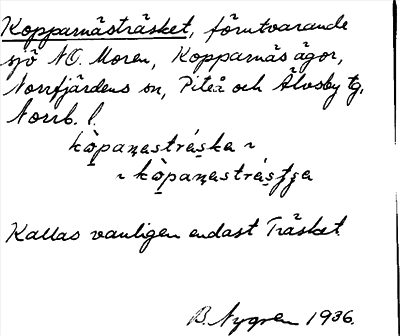 Kopparnästräsket, förutvarande
sjö NO. Moren, Kopparnäs ägor,
Norrfjärdens sn, Piteå och Älvsby tg,
Norrb. l.
kòpanastráska ~
~ kòpanastrásʃʃa
Kallas vanligen endast Träsket.
B. Nygren 1936.